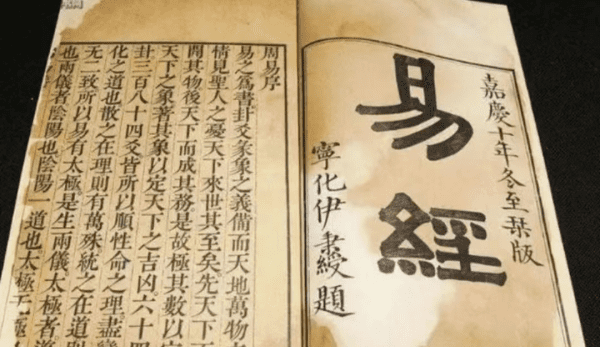 嘉慶十年冬至栞版
易經
寧化伊秉綬題
周易序
易之爲書卦爻彖象之義備而天地萬物
情見聖人之憂天下來世其至矣先天下
開其物後天下而成其務是故極其數以
天下之象著其象以定天下之吉凶六十四
卦三百八十四爻皆所以順性命之理盡變
化之道也散之在理則有萬殊統之在道則
无二致所以易有太極是生兩儀太極者道
也兩儀者陰陽也陰陽一道也太極无極